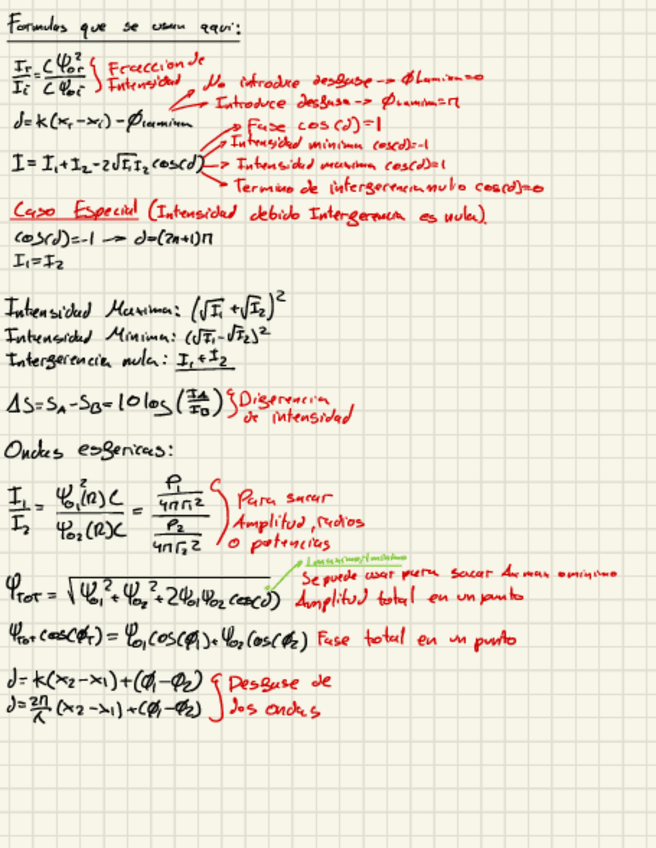 Formulas que se usan aqui:
Ir/Ii = CΨor²/CΨoi² } Fraccion de Intensidad
No introduce desfase -> ϕLamina=0
Introduce desfase -> ϕlamina=π
d=k(xr-xi)-ϕlamina
Fase cos(d)=1
Intensidad minima cos(d)=-1
I=I₁+I₂-2√I₁I₂ cos(d)
Intensidad maxima cos(d)=1
Termino de interferencia nulo cos(d)=0
Caso Especial (Intensidad debido Interferencia es nula).
cos(d)=-1 -> d=(2n+1)π
I₁=I₂
Intensidad Maxima: (√I₁+√I₂)²
Intensidad Minima: (√I₁-√I₂)²
Interferencia nula: I₁+I₂
ΔS=SA-SB=10log(IA/IB) } Diferencia
de intensidad
Ondas esfericas:
I₁/I₂ = Ψ₀₁²(R)C/Ψ₀₂(R)C = (P₁/4πr₁²)/(P₂/4πr₂²)
Para sacar
Amplitud, radios
o potencias
1 maximo/-1 minimo
Se puede usar para sacar A max o minimo
ΨTOT = √Ψ₀₁²+Ψ₀₂²+2Ψ₀₁Ψ₀₂ cos(d) Amplitud total en un punto
ΨTot cos(ϕT) = Ψ₀₁ cos(ϕ₁)+Ψ₀₂ cos(ϕ₂) Fase total en un punto
d=k(x₂-x₁)+(ϕ₁-ϕ₂) } Desfase de
d=2π/λ (x₂-x₁)+(ϕ₁-ϕ₂) dos ondas